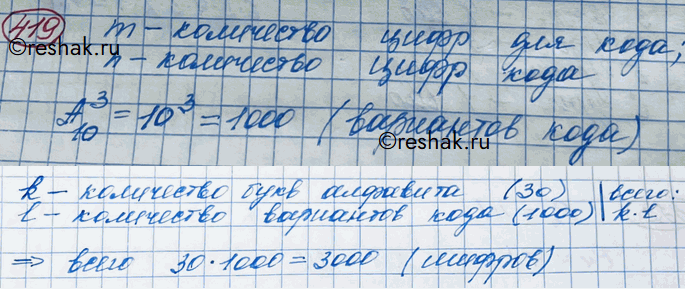 419 m - количество цифр для кода;
n - количество цифр кода
A³₁₀ = 10³ = 1000 (вариантов кода)
k - количество букв алфавита (30) | всего:
l - количество вариантов кода (1000) | k·l
⇒ всего 30·1000 = 3000 (шифров)
©reshak.ru
©reshak.ru
©reshak.ru